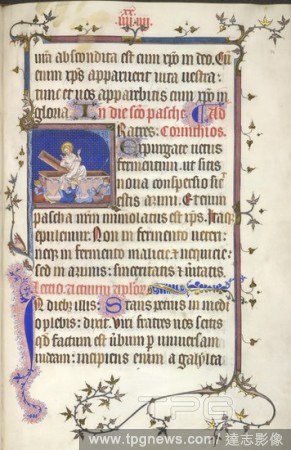 xx
iiii iiii
nr̄a abscondita est cum xp̄o in deo. Cū
enim xp̄s apparuerit vita vestra:
tunc et vos apparebitis cum xp̄o in
gloria. In die scō pasche. Ad
Fratres: Corinthios.
Expurgate vetus
fermentum. ut sitis
nova conspersio sic̄
estis azimi. Etenim
pascha nr̄m immolatus est xp̄s. Itaq̄
epulemur: Non in fermento veteri:
neq; in fermento malicie et nequicie:
sed in azimis: sinceritatis et ūitatis.
Lectio Actuum apl̄or
In dieb; illis: Stans petrus in medi
o plebis: dixit. Viri fratres vos scitis
qd̄ factum est ūbum p̄ universam
iudeam: incipiens enim a galylea
TPG
www.tpgnews.com 達志影像